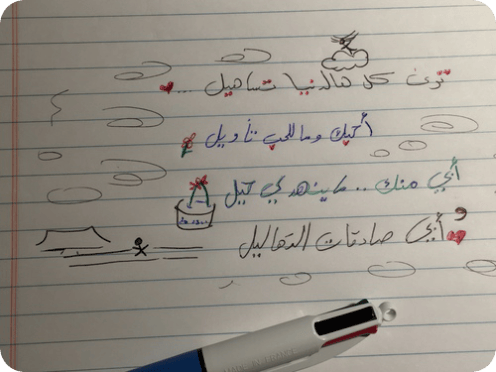 تونى كل هالدنيا تساهيل ...
أحبك وما للحب تأويل
أبي منك .. ما ينهدي كيل
و أبي صادقات التهاليل